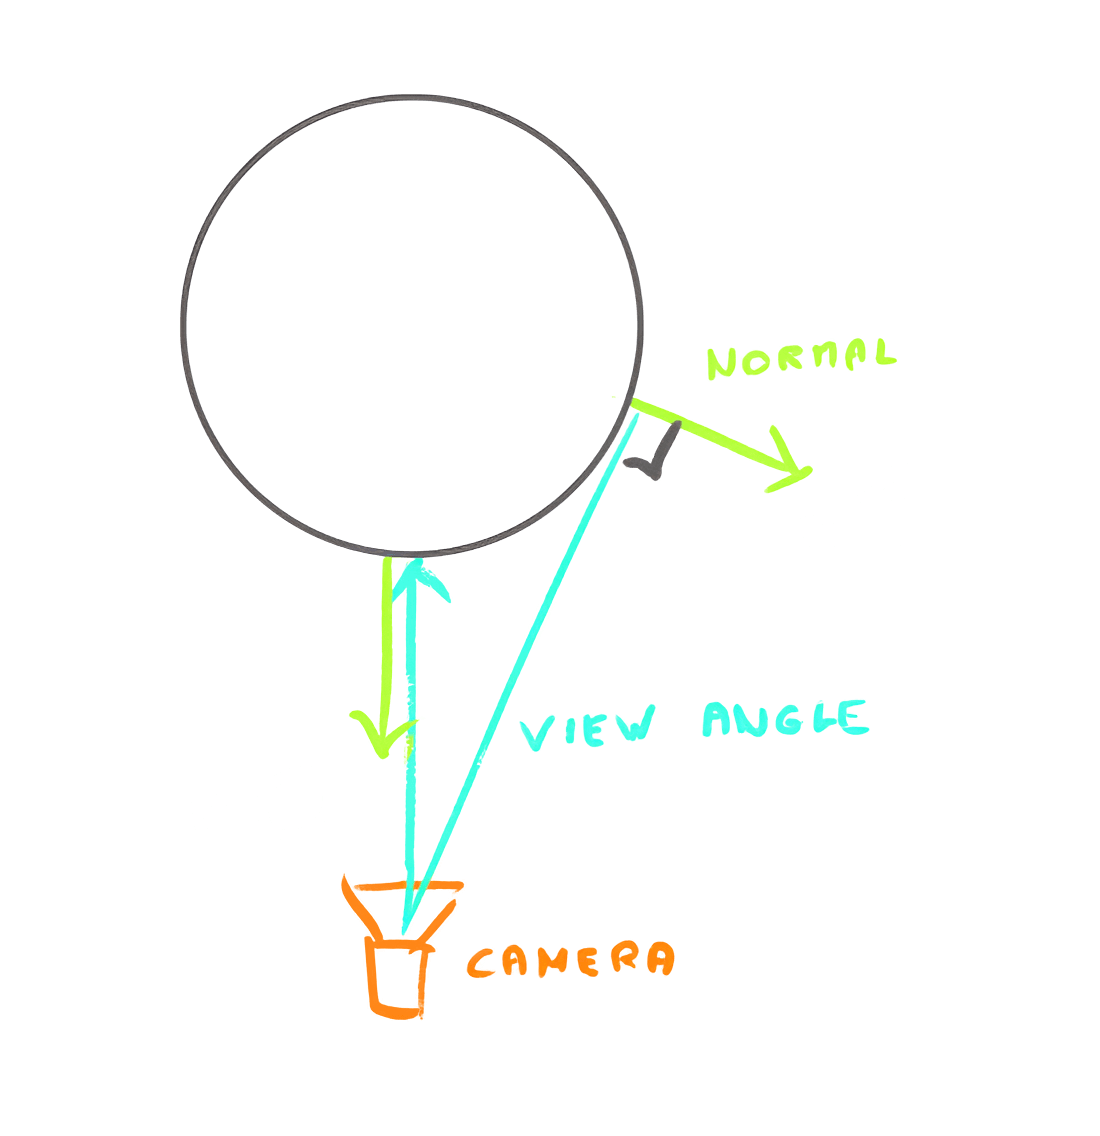 NORMAL
VIEW ANGLE
CAMERA